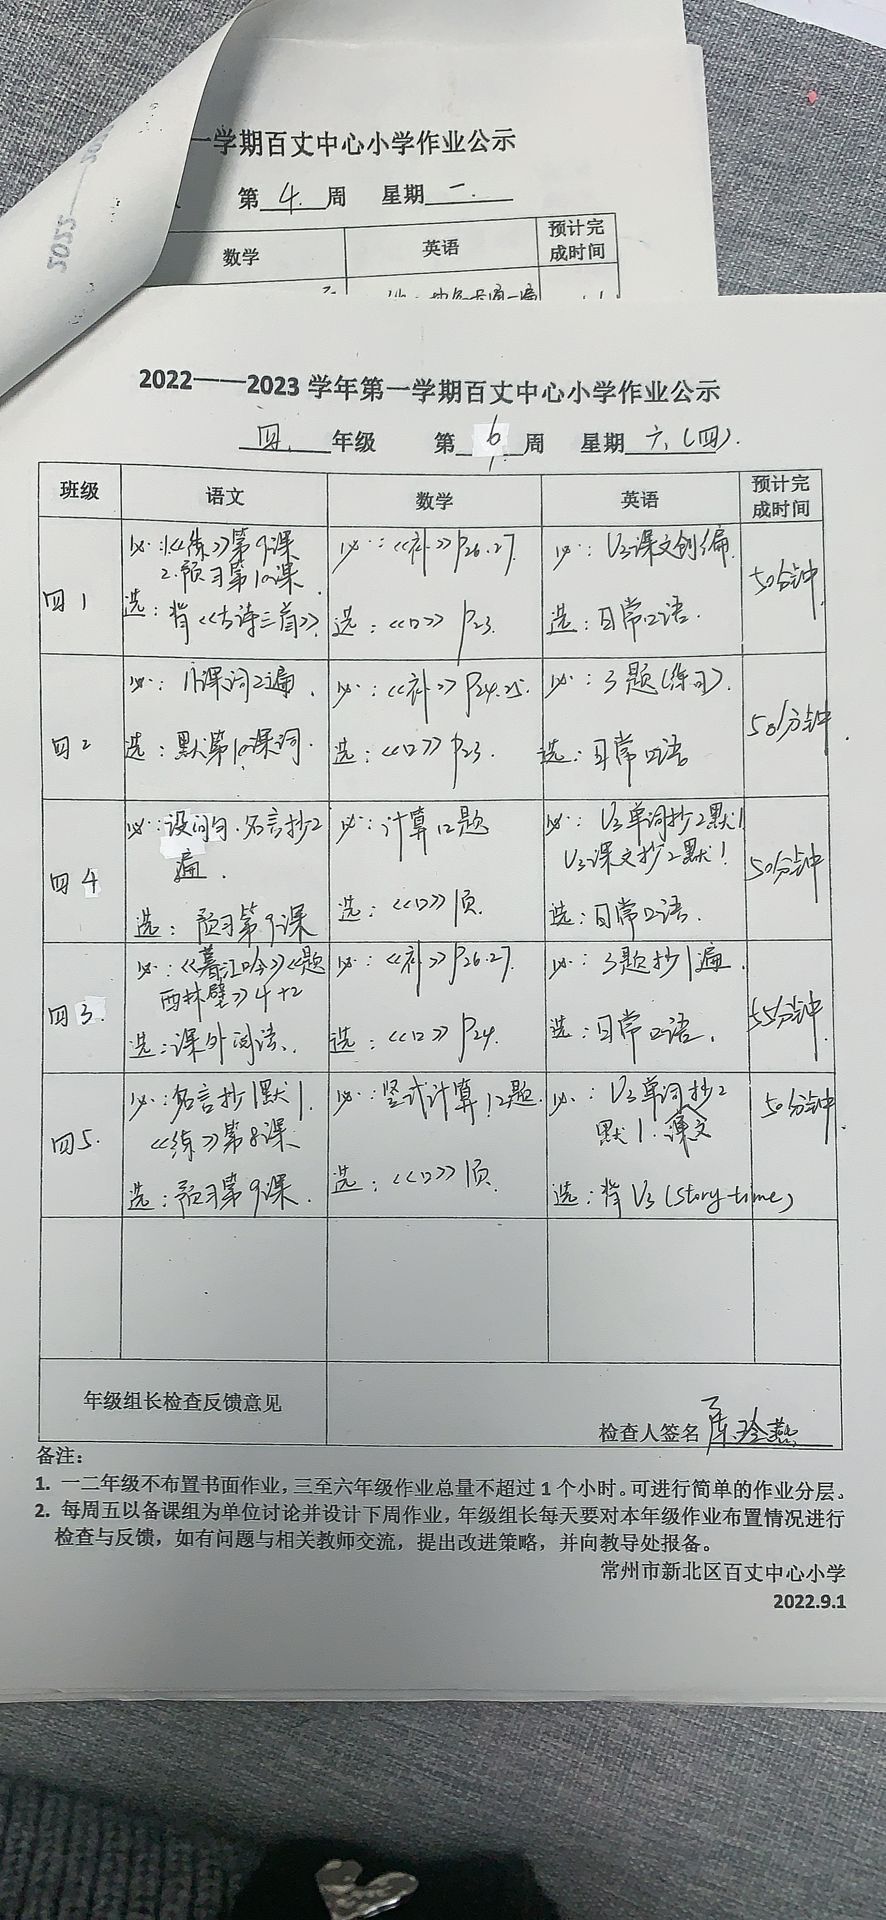 一学期百丈中心小学作业公示
第 4 周 星期 一.
数学 英语 预计完成时间
2022——2023 学年第一学期百丈中心小学作业公示
四. 年级 第 6 周 星期 六.(四).
班级 语文 数学 英语 预计完成时间
四1
必: 1.《练》第9课
2.预习第10课
选: 背《古诗三首》.
必:《补》P26.27.
选:《口》P23.
必: U3课文创编.
选: 日常口语.
50分钟.
四2
必: 11课词2遍.
选: 默第10课词.
必:《补》P24.25.
选:《口》P23.
必: 3题(练习).
选: 日常口语
50分钟.
四4
必: 设问句.名言抄2
遍.
选: 预习第9课
必: 计算12题
选:《口》1页.
必: U3单词抄2默1
U3课文抄2默1
选: 日常口语.
50分钟
四3.
必:《暮江吟》《题
西林壁》4+2
选: 课外阅读.
必:《补》P26.27.
选:《口》P24.
必: 3题抄1遍.
选: 日常口语.
55分钟.
四5.
必: 名言抄1默1.
《练》第8课
选: 预习第9课.
必: 竖式计算12题.
选:《口》1页.
必: U3单词抄2
默1.课文
选: 背U3(story time)
50分钟.
年级组长检查反馈意见
检查人签名
备注:
1. 一二年级不布置书面作业,三至六年级作业总量不超过 1 个小时。可进行简单的作业分层。
2. 每周五以备课组为单位讨论并设计下周作业,年级组长每天要对本年级作业布置情况进行
检查与反馈,如有问题与相关教师交流,提出改进策略,并向教导处报备。
常州市新北区百丈中心小学
2022.9.1